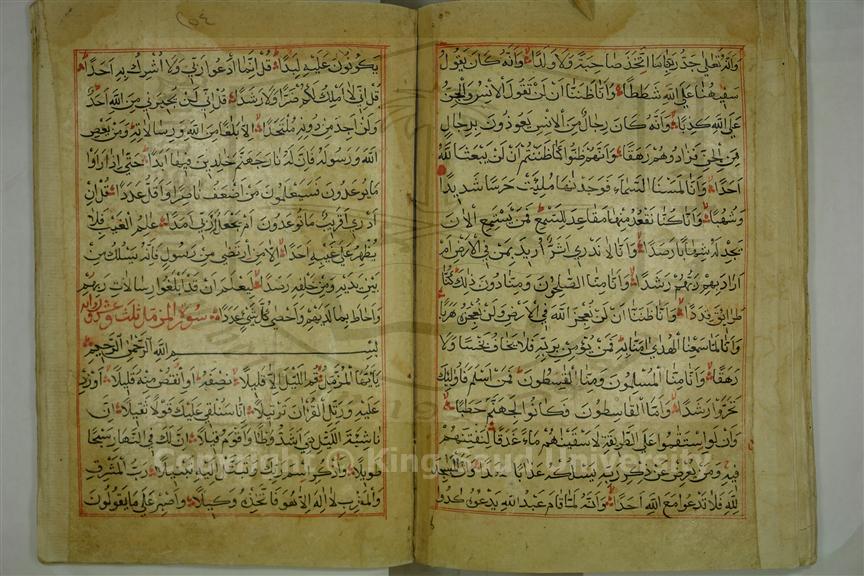 وَاَنَّهُ تَعَالٰى جَدُّ رَبِّنَا مَا اتَّخَذَ صَاحِبَةً وَلَا وَلَدًا وَاَنَّهُ كَانَ يَقُولُ
سَفِيهُنَا عَلَى اللّٰهِ شَطَطًا وَاَنَّا ظَنَنَّا اَنْ لَنْ تَقُولَ الْاِنْسُ وَالْجِنُّ
عَلَى اللّٰهِ كَذِبًا وَاَنَّهُ كَانَ رِجَالٌ مِنَ الْاِنْسِ يَعُوذُونَ بِرِجَالٍ
مِنَ الْجِنِّ فَزَادُوهُمْ رَهَقًا وَاَنَّهُمْ ظَنُّوا كَمَا ظَنَنْتُمْ اَنْ لَنْ يَبْعَثَ اللّٰهُ
اَحَدًا وَاَنَّا لَمَسْنَا السَّمَاءَ فَوَجَدْنَاهَا مُلِئَتْ حَرَسًا شَدِيدًا
وَشُهُبًا وَاَنَّا كُنَّا نَقْعُدُ مِنْهَا مَقَاعِدَ لِلسَّمْعِ فَمَنْ يَسْتَمِعِ الْاٰنَ
يَجِدْ لَهُ شِهَابًا رَصَدًا وَاَنَّا لَا نَدْرِى اَشَرٌّ اُرِيدَ بِمَنْ فِى الْاَرْضِ اَمْ
اَرَادَ بِهِمْ رَبُّهُمْ رَشَدًا وَاَنَّا مِنَّا الصَّالِحُونَ وَمِنَّا دُونَ ذٰلِكَ كُنَّا
طَرَائِقَ قِدَدًا وَاَنَّا ظَنَنَّا اَنْ لَنْ نُعْجِزَ اللّٰهَ فِى الْاَرْضِ وَلَنْ نُعْجِزَهُ هَرَبًا
وَاَنَّا لَمَّا سَمِعْنَا الْهُدٰى اٰمَنَّا بِهِ فَمَنْ يُؤْمِنْ بِرَبِّهِ فَلَا يَخَافُ بَخْسًا وَلَا
رَهَقًا وَاَنَّا مِنَّا الْمُسْلِمُونَ وَمِنَّا الْقَاسِطُونَ فَمَنْ اَسْلَمَ فَاُولٰئِكَ
تَحَرَّوْا رَشَدًا وَاَمَّا الْقَاسِطُونَ فَكَانُوا لِجَهَنَّمَ حَطَبًا
وَاَنْ لَوِ اسْتَقَامُوا عَلَى الطَّرِيقَةِ لَاَسْقَيْنَاهُمْ مَاءً غَدَقًا لِنَفْتِنَهُمْ
فِيهِ وَمَنْ يُعْرِضْ عَنْ ذِكْرِ رَبِّهِ يَسْلُكْهُ عَذَابًا صَعَدًا وَاَنَّ الْمَسَاجِدَ
لِلّٰهِ فَلَا تَدْعُوا مَعَ اللّٰهِ اَحَدًا وَاَنَّهُ لَمَّا قَامَ عَبْدُ اللّٰهِ يَدْعُوهُ كَادُوا
يَكُونُونَ عَلَيْهِ لِبَدًا قُلْ اِنَّمَا اَدْعُوا رَبِّى وَلَا اُشْرِكُ بِهِ اَحَدًا
قُلْ اِنِّى لَا اَمْلِكُ لَكُمْ ضَرًّا وَلَا رَشَدًا قُلْ اِنِّى لَنْ يُجِيرَنِى مِنَ اللّٰهِ اَحَدٌ
وَلَنْ اَجِدَ مِنْ دُونِهِ مُلْتَحَدًا اِلَّا بَلَاغًا مِنَ اللّٰهِ وَرِسَالَاتِهِ وَمَنْ يَعْصِ
اللّٰهَ وَرَسُولَهُ فَاِنَّ لَهُ نَارَ جَهَنَّمَ خَالِدِينَ فِيهَا اَبَدًا حَتّٰى اِذَا رَاَوْا
مَا يُوعَدُونَ فَسَيَعْلَمُونَ مَنْ اَضْعَفُ نَاصِرًا وَاَقَلُّ عَدَدًا قُلْ اِنْ
اَدْرِى اَقَرِيبٌ مَا تُوعَدُونَ اَمْ يَجْعَلُ لَهُ رَبِّى اَمَدًا عَالِمُ الْغَيْبِ فَلَا
يُظْهِرُ عَلٰى غَيْبِهِ اَحَدًا اِلَّا مَنِ ارْتَضٰى مِنْ رَسُولٍ فَاِنَّهُ يَسْلُكُ مِنْ
بَيْنِ يَدَيْهِ وَمِنْ خَلْفِهِ رَصَدًا لِيَعْلَمَ اَنْ قَدْ اَبْلَغُوا رِسَالَاتِ رَبِّهِمْ
وَاَحَاطَ بِمَا لَدَيْهِمْ وَاَحْصٰى كُلَّ شَىْءٍ عَدَدًا سورة المزمل
بِسْمِ اللّٰهِ الرَّحْمٰنِ الرَّحِيمِ
يَا اَيُّهَا الْمُزَّمِّلُ قُمِ اللَّيْلَ اِلَّا قَلِيلًا نِصْفَهُ اَوِ انْقُصْ مِنْهُ قَلِيلًا اَوْ زِدْ
عَلَيْهِ وَرَتِّلِ الْقُرْاٰنَ تَرْتِيلًا اِنَّا سَنُلْقِى عَلَيْكَ قَوْلًا ثَقِيلًا اِنَّ
نَاشِئَةَ اللَّيْلِ هِىَ اَشَدُّ وَطْئًا وَاَقْوَمُ قِيلًا اِنَّ لَكَ فِى النَّهَارِ سَبْحًا
طَوِيلًا وَاذْكُرِ اسْمَ رَبِّكَ وَتَبَتَّلْ اِلَيْهِ تَبْتِيلًا رَبُّ الْمَشْرِقِ
وَالْمَغْرِبِ لَا اِلٰهَ اِلَّا هُوَ فَاتَّخِذْهُ وَكِيلًا وَاصْبِرْ عَلٰى مَا يَقُولُونَ
Copyright © King Saud University